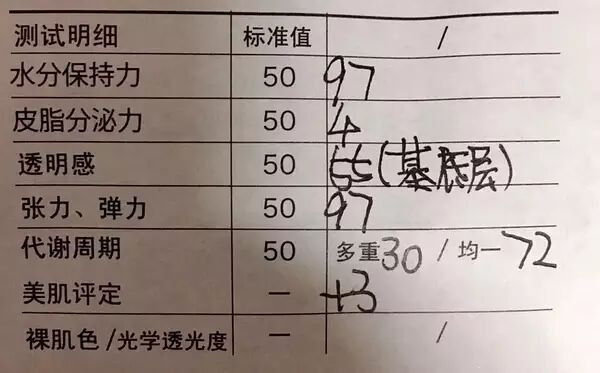 测试明细 标准值 /
水分保持力 50 97
皮脂分泌力 50 4
透明感 50 55(基底层)
张力、弹力 50 97
代谢周期 50 多重30 / 均一72
美肌评定 — +3
裸肌色/光学透光度 — /